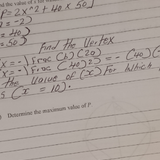 P=2x^2+40x+50
=-2)
=40)
=50)
Find the Vertex
x=-\frac(b)(2a)
x=-\frac(40)2)=-(40)(
the value of (x) for which
s (x=10).
Determine the maximum value of P